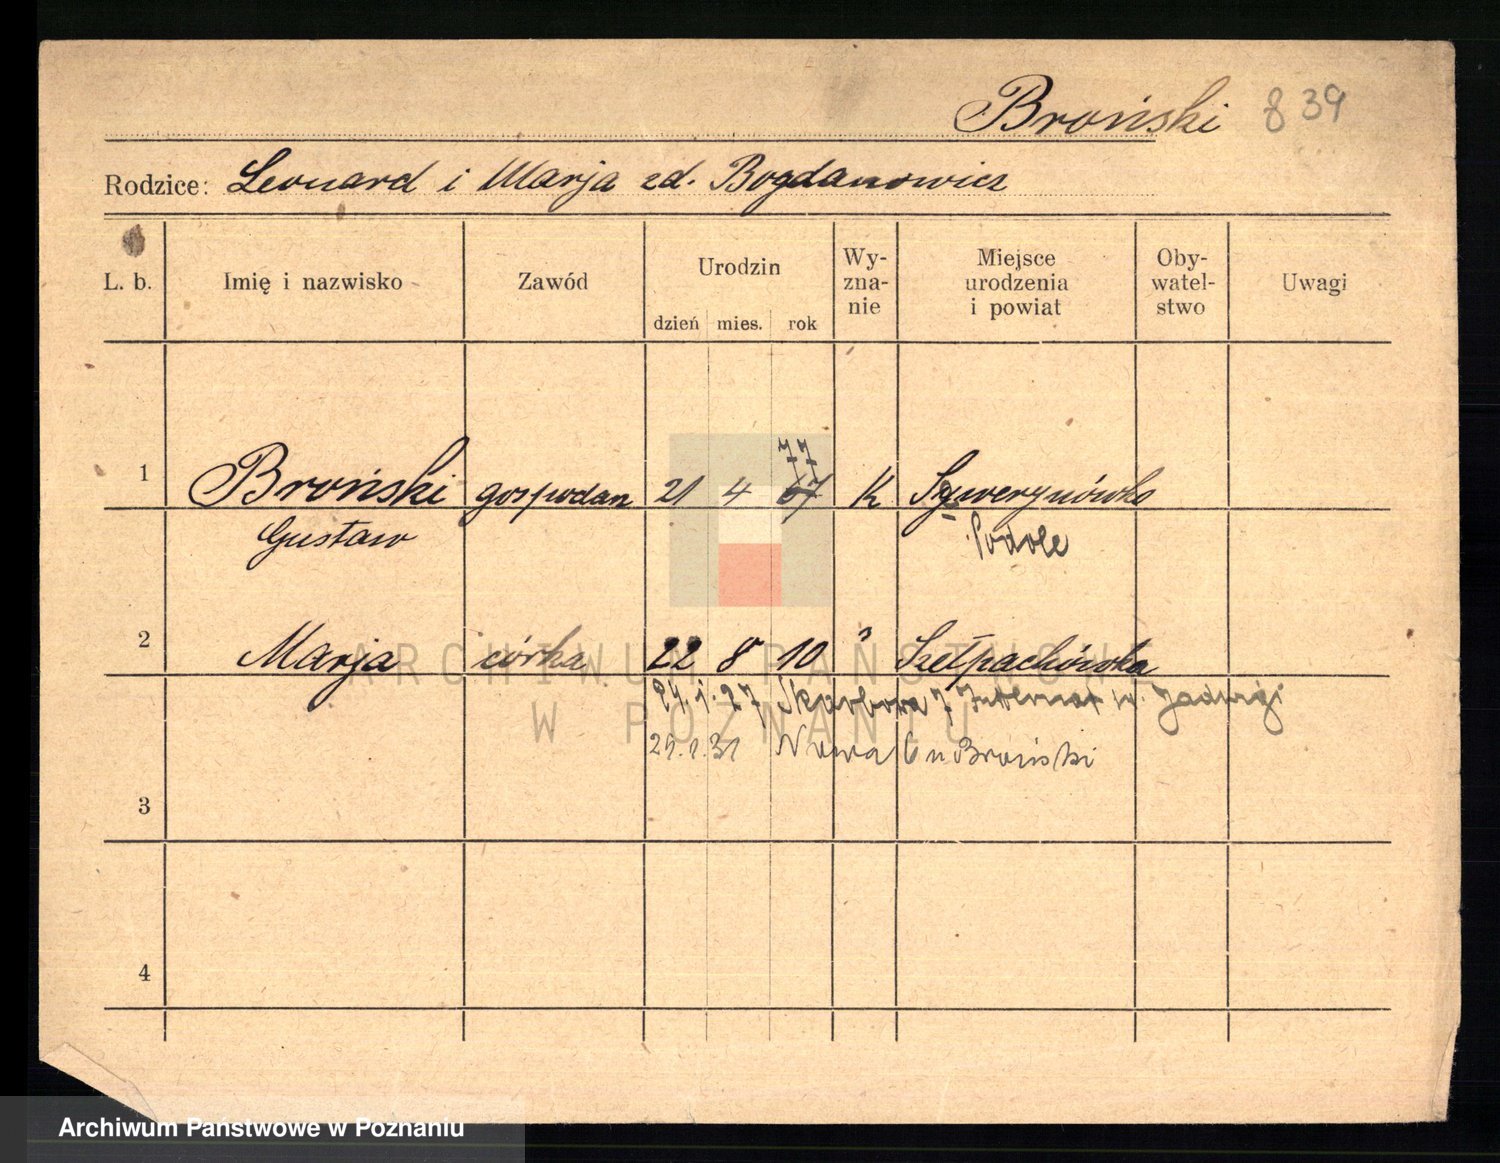 Broński 839
Rodzice: Leonard i Marja zd. Bogdanowicz
L. b. Imię i nazwisko Zawód Urodzin dzień mies. rok Wy-zna-nie Miejsce urodzenia i powiat Oby-watel-stwo Uwagi
77
1 Broński gospodarz 21 4 67 K Sewerynówka
Gustaw Podole
2 Marja córka 22 8 10 " 
24.1.27 Skarbowa 7 Internat św. Jadwigi
29.1.31 Nowa 6 u Broński
3
4
ARCHIWUM PAŃSTWOWE
W POZNANIU
Archiwum Państwowe w Poznaniu